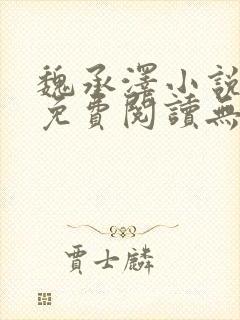 魏承澤小說
免費閱讀無
賈士麟